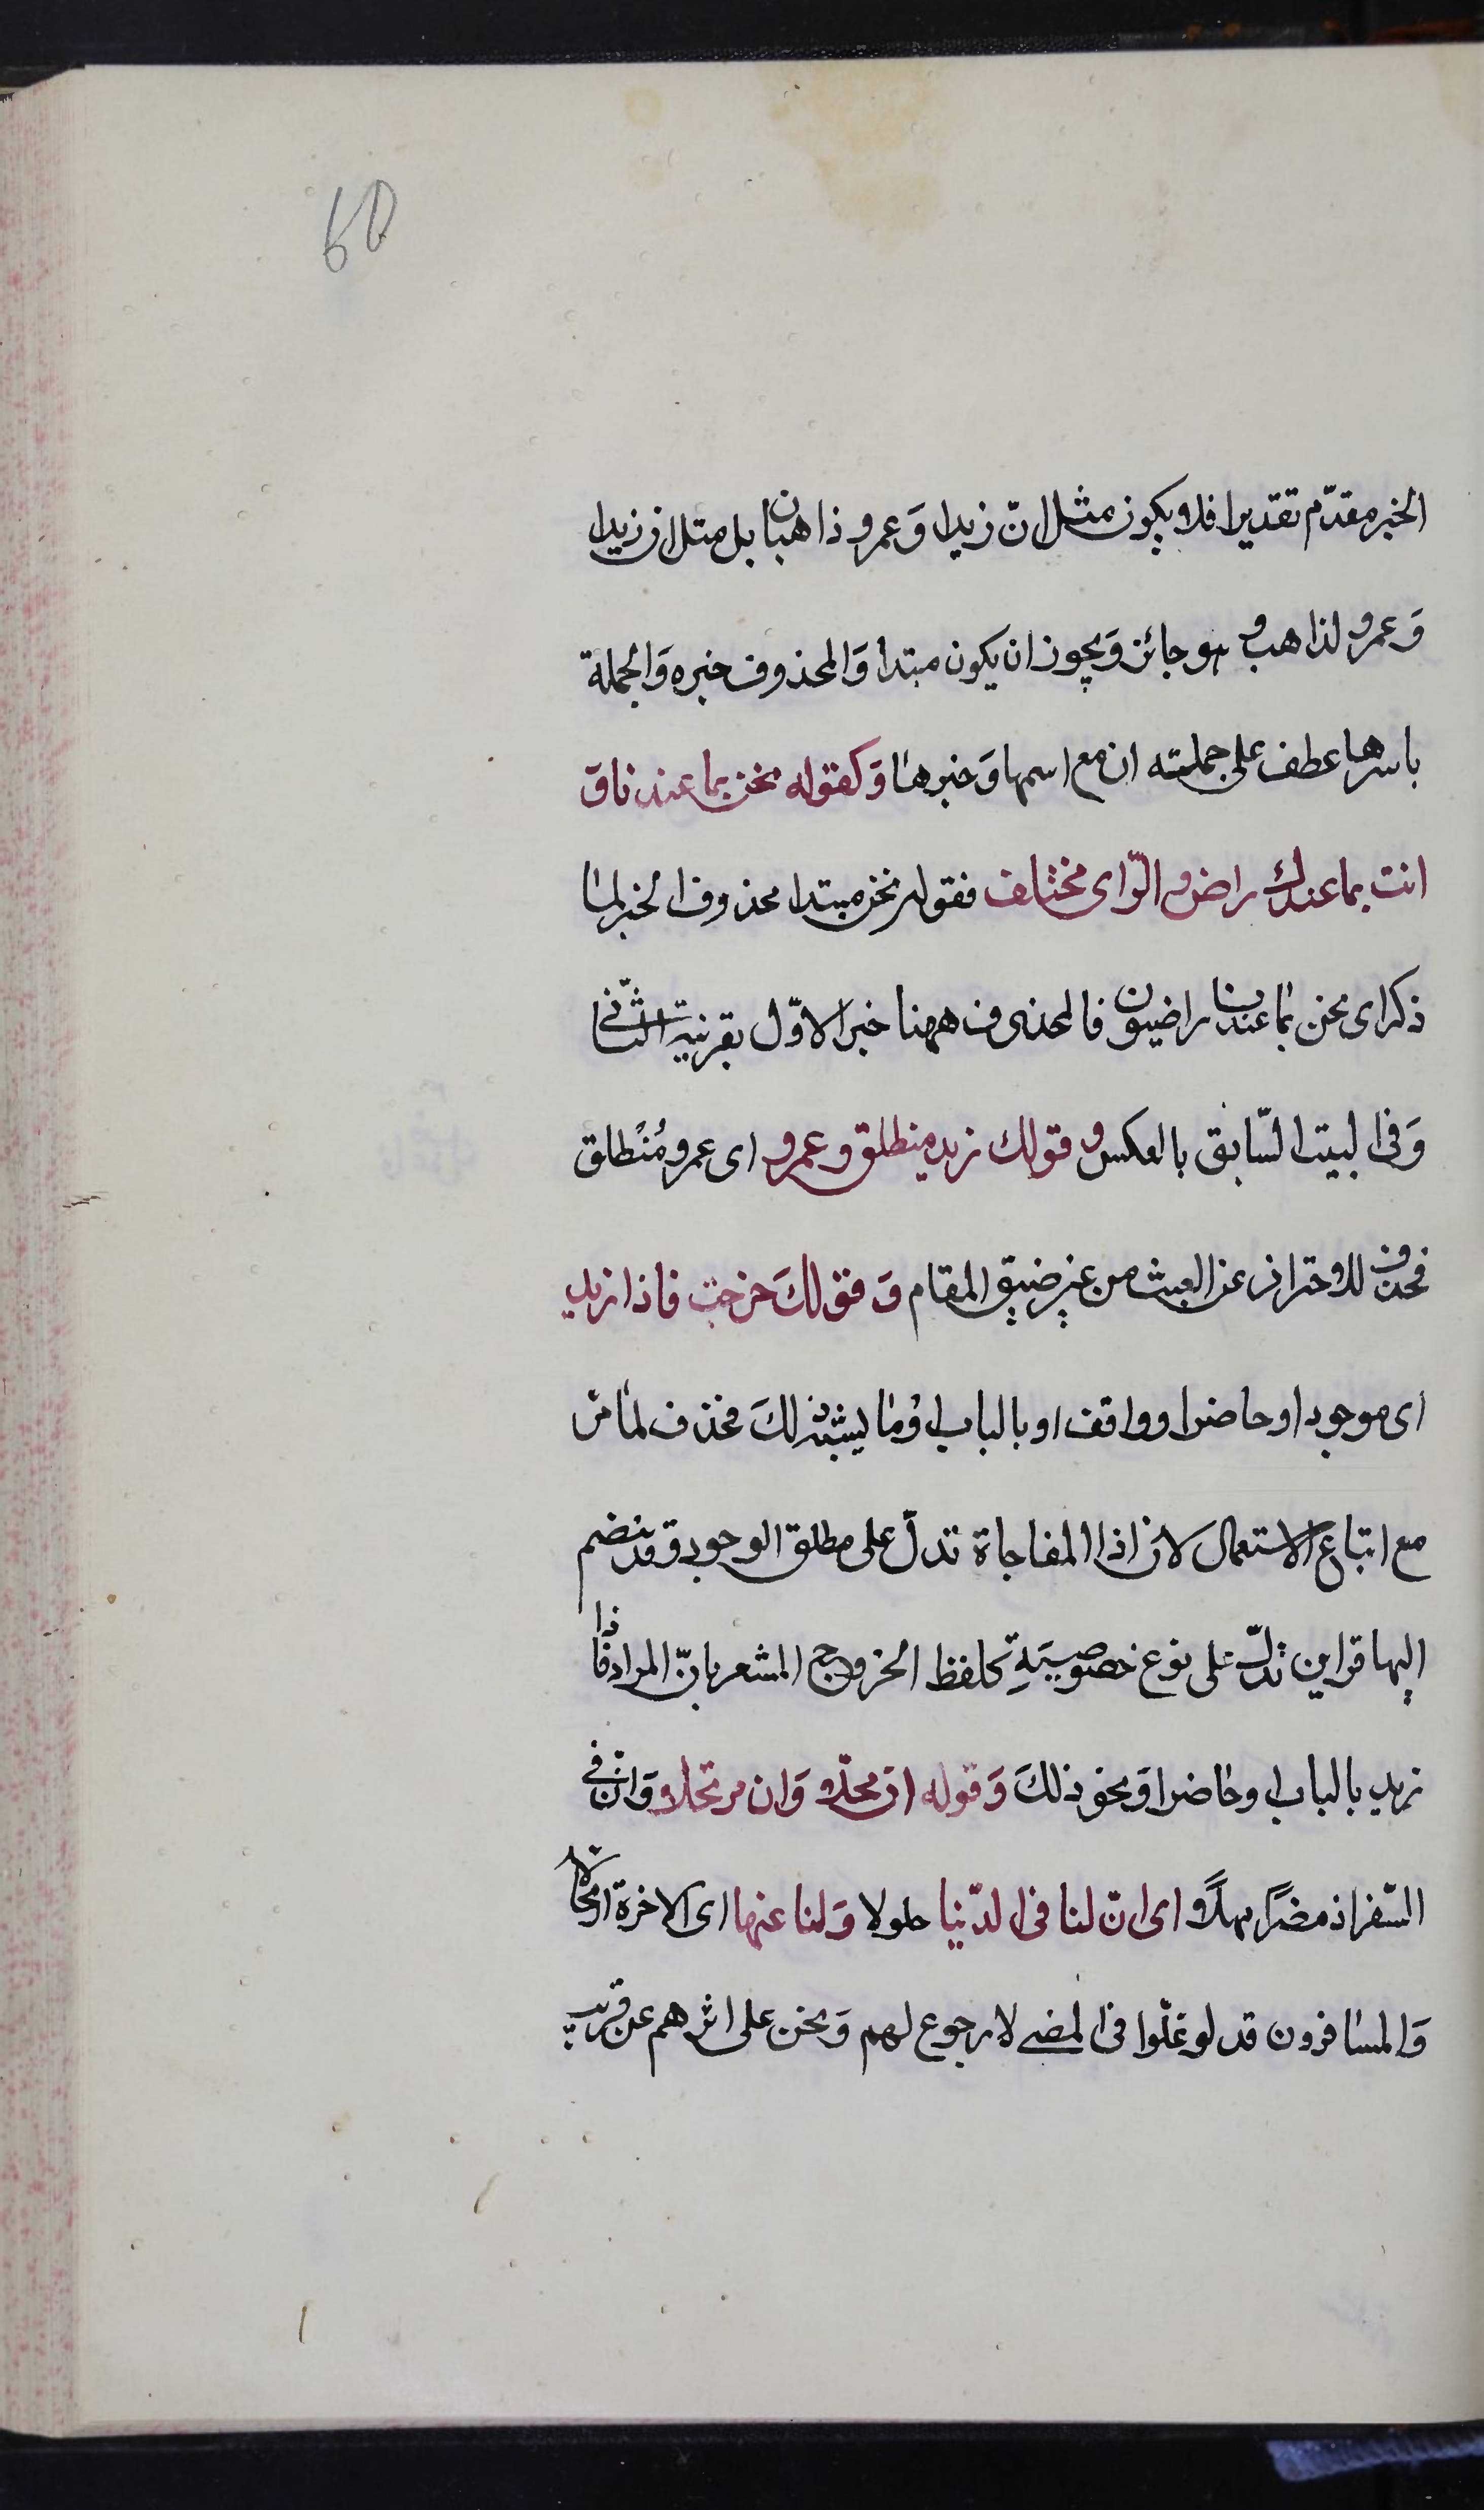 60
الخبر مقدّم تقديرا فلا يكون مثل انّ زيدا وَعمرو ذاهبان بل مثل ان زيدا
وَعمرو لذاهب و هو جائز وَيجوز ان يكون مبتدا وَالمحذوف خبره وَالجملة
باسرها عطف على جملته ان مع اسمها وَخبرها وَكقوله نحن بما عندنا وَ
انت بما عندك راض و الرّاى مختلف فقوله نحن مبتدا محذوف الخبر لما
ذكر اى نحن بما عندنا راضون فالمحذوف ههنا خبر الاوّل بقرنية الثّانى
وَفى البيت السّابق بالعكس و قولك زيد منطلق و عمرو اى عمرو مُنْطلق
فحذف للاحتراز عن العبث من غير ضيق المقام وَ قولكَ خرجت فاذا زيد
اى موجود او حاضر او واقف او بالباب او ما يشبه ذلكَ فحذف لما مر
مع اتباع الاستعمال لان اذا المفاجاة تدلّ على مطلق الوجود و قد ينضم
اليها قراين تدلّ على نوع خصوصيّةٍ كلفظ الخروج المشعر بانّ المراد فاذا
زيد بالباب او حاضر او نحو ذلكَ وَقوله ان محلّا وَان مرتحلا وَانّ فى
السّفر اذ مضوا مهلًا اى انّ لنا فى الدّنيا حلولا وَلنا عنها اى الاخرة ارتحالا
وَالمسافرون قد لوغلّوا فى المضى لا رجوع لهم وَنحن على اثرهم عن قريب